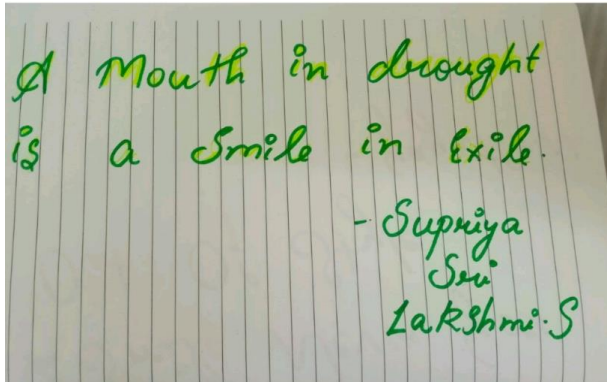 A Mouth in drought
is a Smile in Exile.
- Supriya
Sri
Lakshmi.S